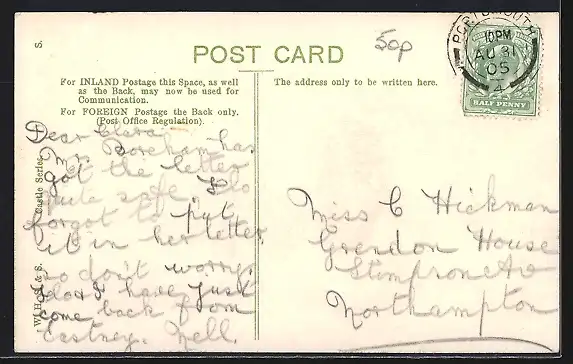 POST CARD
50p
PORTSMOUTH
10PM
AU 31
05
4
HALF PENNY
For INLAND Postage this Space, as well
as the Back, may now be used for
Communication.
For FOREIGN Postage the Back only.
(Post Office Regulation).
The address only to be written here.
S.
Castle Series.
W. H. S. & S.
Dear Clara
Mrs. Boreham has
got the letter
quite safe. Flo
forgot to put
it in her letter
so don't worry.
Ida & I have just
come back from
Eastney. Nell.
Miss C Hickman
Grendon House
Av
Northampton